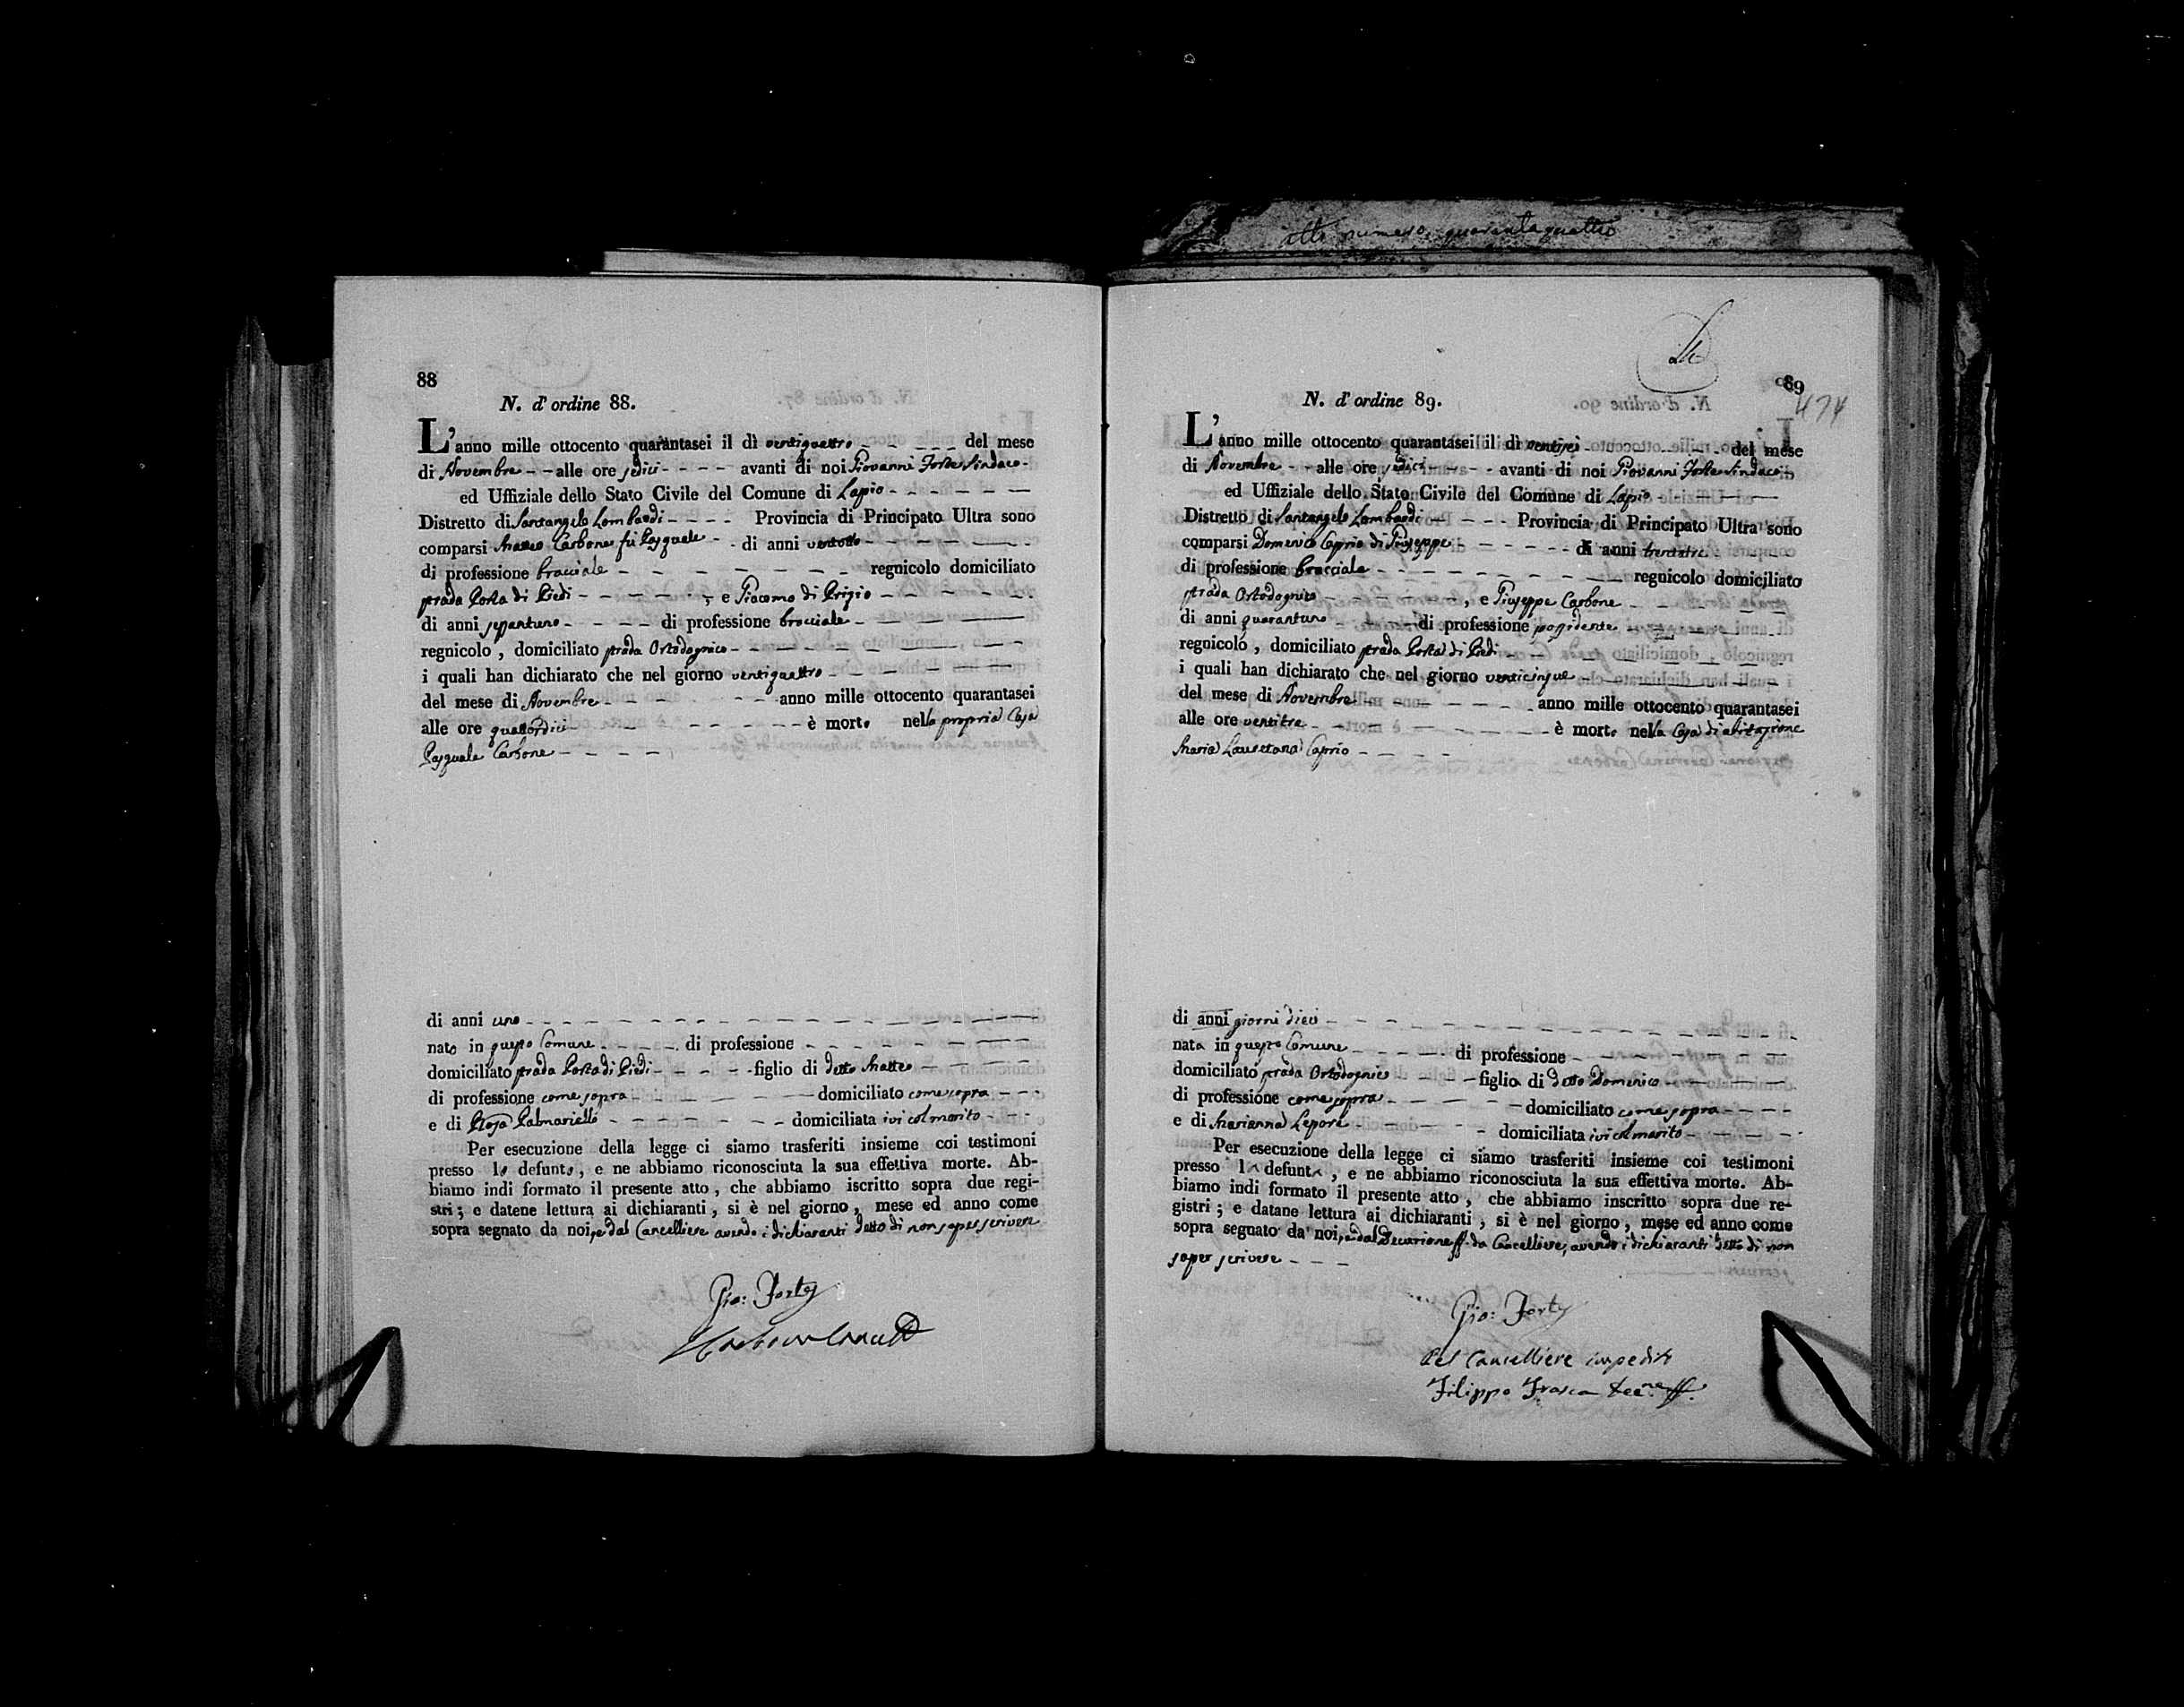 atto numero quarantaquattro
88
N. d' ordine 88.
L'anno mille ottocento quarantasei il dì ventiquattro del mese
di Novembre alle ore sedici avanti di noi Giovanni Forte Sindaco
ed Uffiziale dello Stato Civile del Comune di Lapio
Distretto di Santangelo Lombardi Provincia di Principato Ultra sono
comparsi Matteo Carbone fu Pasquale di anni ventotto
di professione bracciale regnicolo domiciliato
strada Porta di Piedi , e Giacomo di Prizio
di anni sessantuno di professione bracciale
regnicolo , domiciliato strada Ortodognico
i quali han dichiarato che nel giorno ventiquattro
del mese di Novembre anno mille ottocento quarantasei
alle ore quattordici è morto nella propria Casa
Pasquale Carbone
di anni uno
nato in questo Comune di professione
domiciliato strada Porta di Piedi figlio di detto Matteo
di professione come sopra domiciliato come sopra
e di Rosa Palmariello domiciliata ivi col marito
Per esecuzione della legge ci siamo trasferiti insieme coi testimoni
presso lo defunto, e ne abbiamo riconosciuta la sua effettiva morte. Ab-
biamo indi formato il presente atto , che abbiamo iscritto sopra due regi-
stri ; e datene lettura ai dichiaranti , si è nel giorno , mese ed anno come
sopra segnato da noi, e dal Cancelliere avendo i dichiaranti detto di non saper scrivere
Gio: Forte
89
474
N. d' ordine 89.
L'anno mille ottocento quarantasei il dì ventisei del mese
di Novembre alle ore sedici avanti di noi Giovanni Forte Sindaco
ed Uffiziale dello Stato Civile del Comune di Lapio
Distretto di Santangelo Lombardi Provincia di Principato Ultra sono
comparsi Domenico Caprio di Giuseppe di anni trentatre
di professione bracciale regnicolo domiciliato
strada Ortodognico , e Giuseppe Carbone
di anni quarantuno di professione possidente
regnicolo , domiciliato strada Porta di Piedi
i quali han dichiarato che nel giorno venticinque
del mese di Novembre anno mille ottocento quarantasei
alle ore ventitre è morta nella Casa di abitazione
Maria Lauretana Caprio
di anni giorni dieci
nata in questo Comune di professione
domiciliato strada Ortodognico figlia di detto Domenico
di professione come sopra domiciliato come sopra
e di Marianna Lepore domiciliata ivi col marito
Per esecuzione della legge ci siamo trasferiti insieme coi testimoni
presso la defunta , e ne abbiamo riconosciuta la sua effettiva morte. Ab-
biamo indi formato il presente atto , che abbiamo inscritto sopra due re-
gistri ; e datane lettura ai dichiaranti , si è nel giorno , mese ed anno come
sopra segnato da noi, e dal Decurione ff. da Cancelliere, avendo i dichiaranti detto di non
saper scrivere
Gio: Forte
Pel Cancelliere impedito
Filippo Frasca